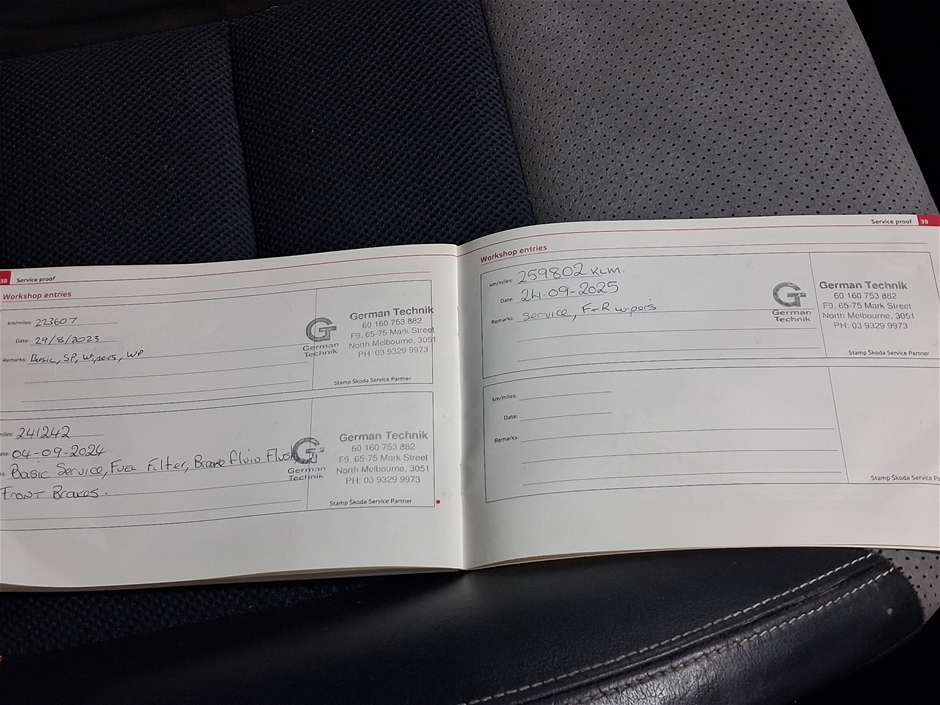 38 Service proof
Workshop entries
km/miles: 223607
Date: 29/8/2023
Remarks: Basic, SP, Wipers, WP
German Technik
German Technik
60 160 753 882
F9, 65-75 Mark Street
North Melbourne, 3051
PH: 03 9329 9973
Stamp Škoda Service Partner
miles: 241242
ate: 04-09-2024
s: Basic Service, Fuel Filter, Brake Fluid Flush
Front Brakes.
German Technik
German Technik
60 160 753 882
F9, 65-75 Mark Street
North Melbourne, 3051
PH: 03 9329 9973
Stamp Škoda Service Partner
Service proof 39
Workshop entries
km/miles: 259802 KLM.
Date: 24-09-2025
Remarks: Service, F+R wipers
German Technik
German Technik
60 160 753 882
F9, 65-75 Mark Street
North Melbourne, 3051
PH: 03 9329 9973
Stamp Škoda Service Partner
km/miles:
Date:
Remarks:
Stamp Škoda Service Pa